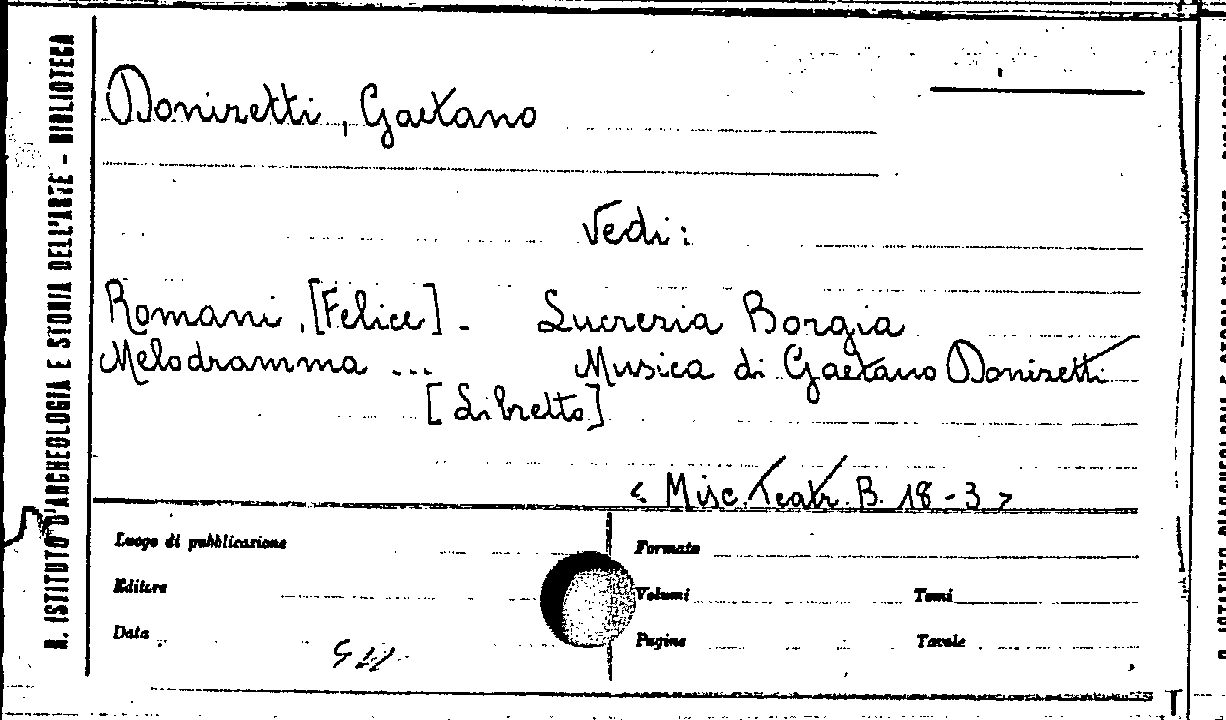 R. ISTITUTO D'ARCHEOLOGIA E STORIA DELL'ARTE - BIBLIOTECA
Donizetti, Gaetano
Vedi:
Romani, [Felice] - Lucrezia Borgia
Melodramma ... Musica di Gaetano Donizetti
[Libretto]
< Misc. Teatr. B. 18-3 >
Luogo di pubblicazione
Formato
Editore
Volumi
Tomi
Data
Pagine
Tavole